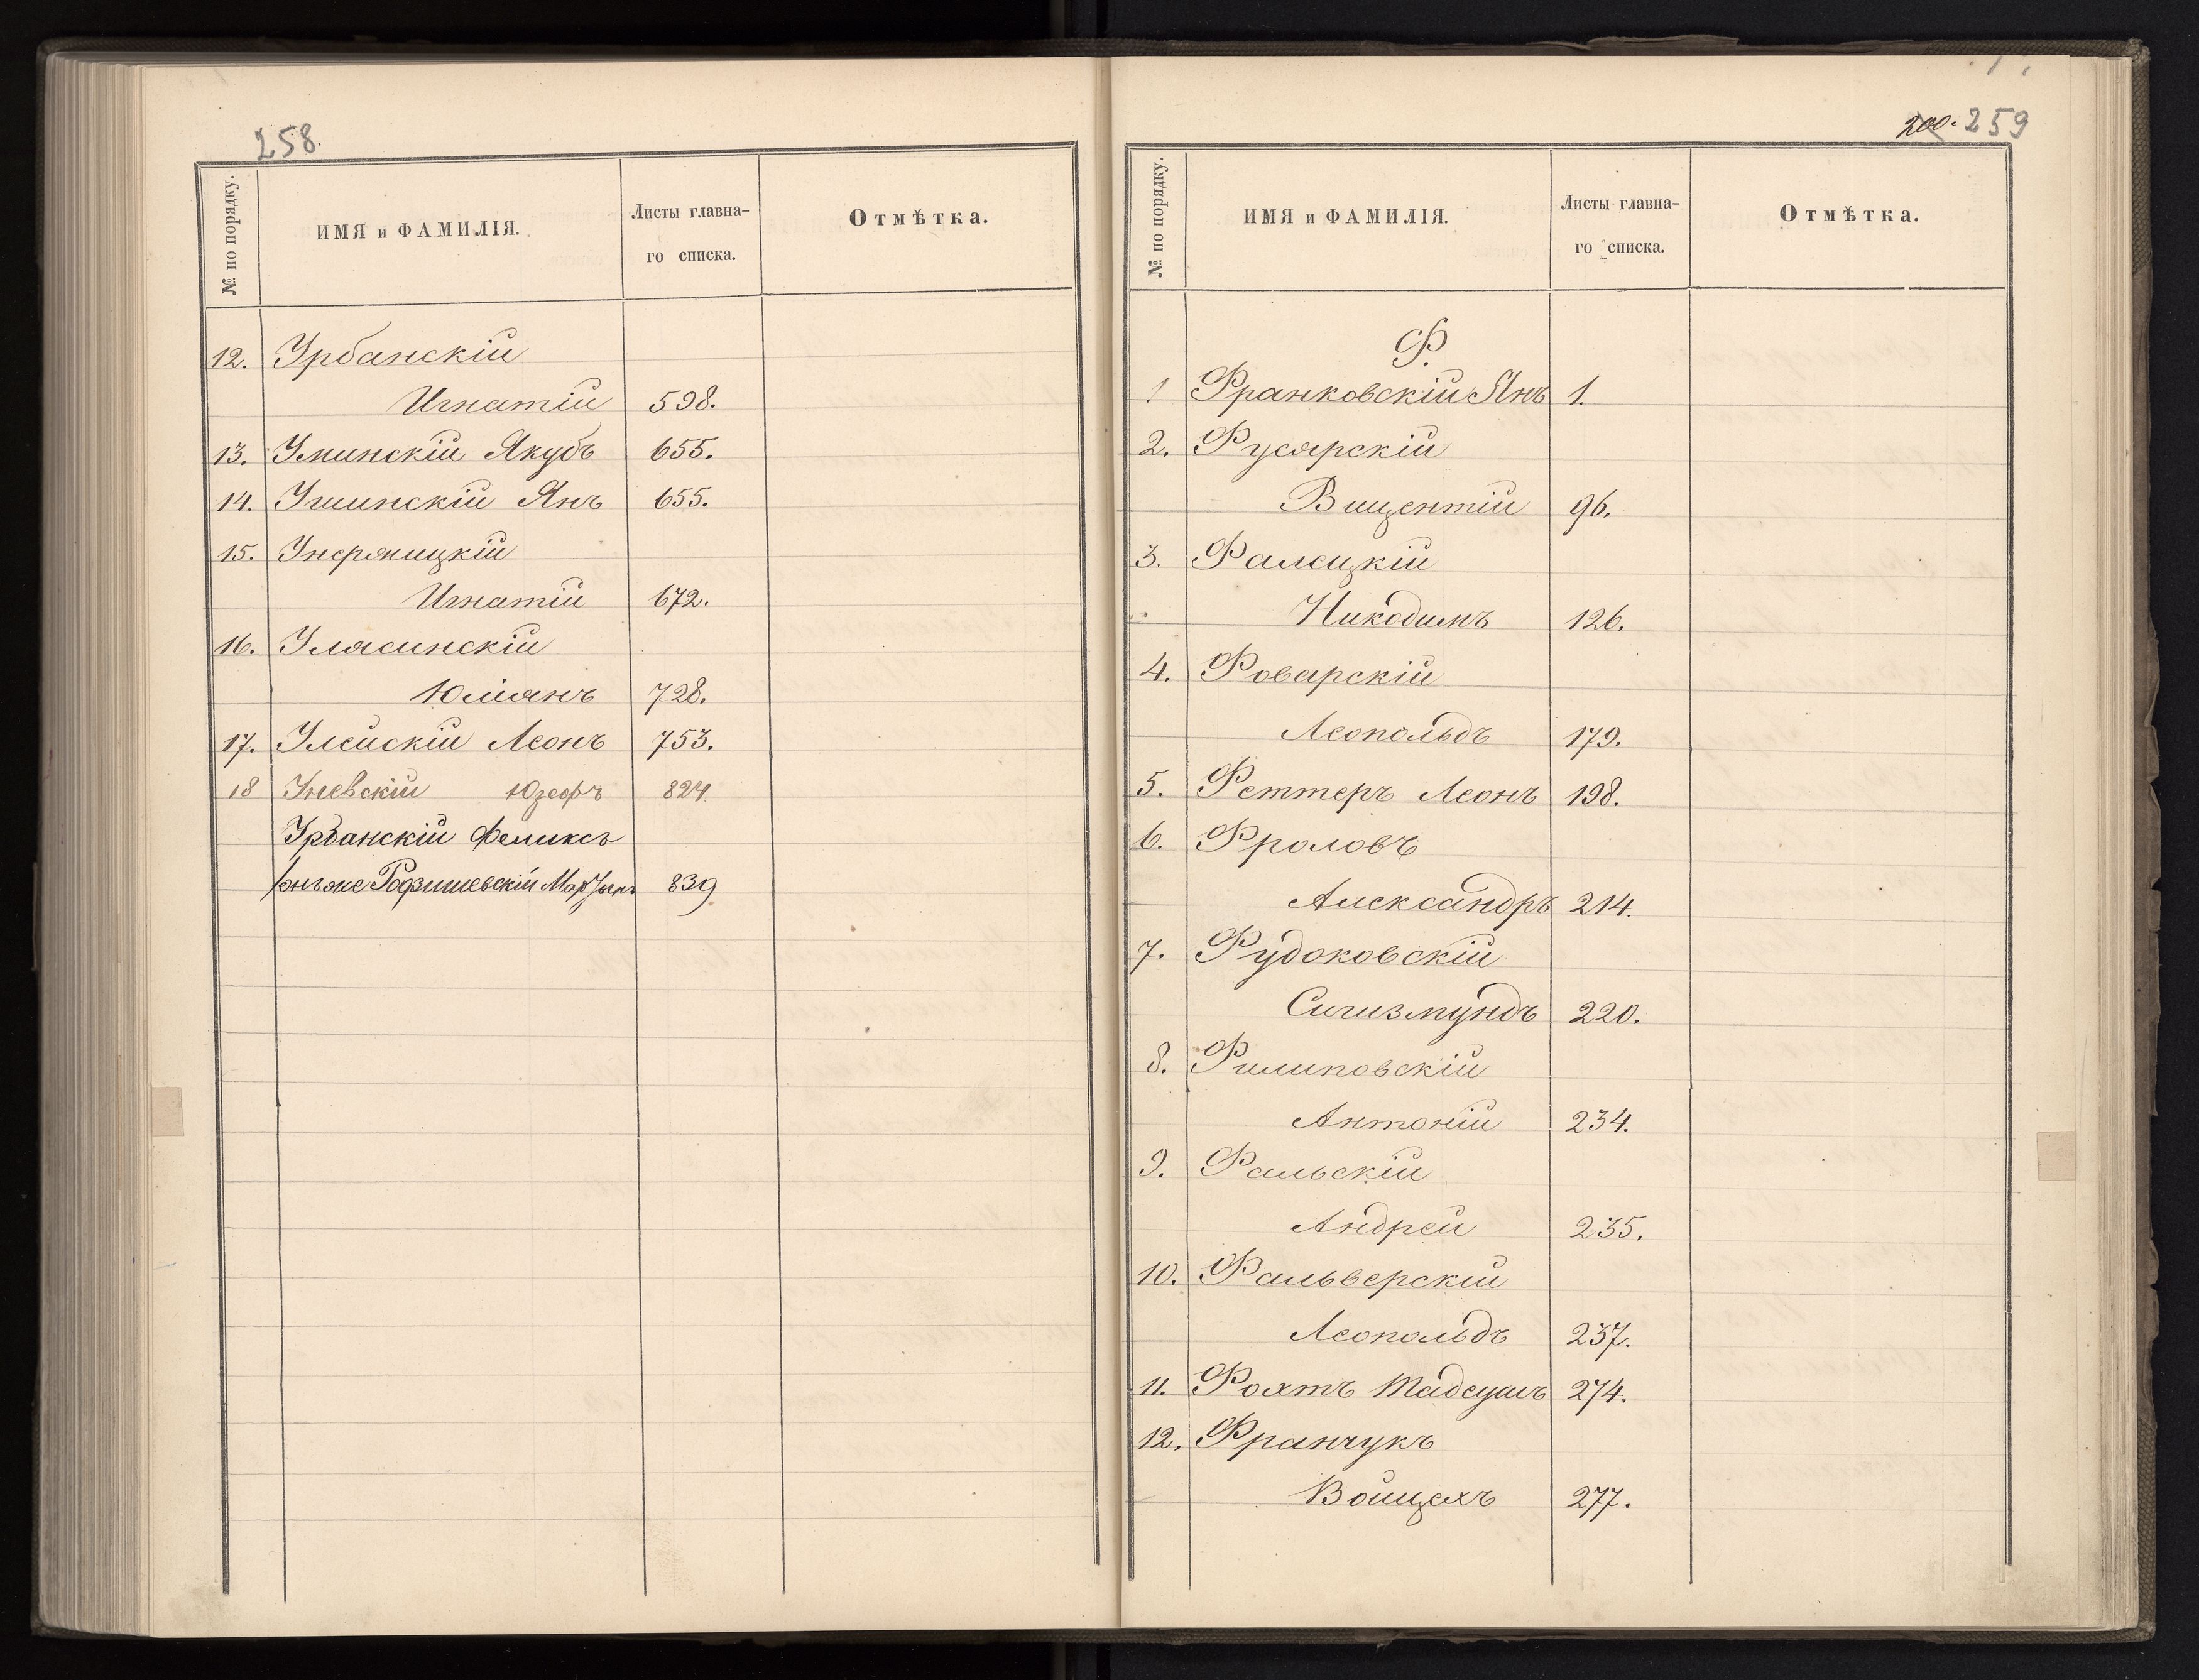 258.
№ по порядку.
ИМЯ и ФАМИЛІЯ.
Листы главна-
го списка.
Отмѣтка.
12. Урбанскій
Игнатій 598.
13. Уминскій Якубъ 655.
14. Ушинскій Янъ 655.
15. Унержицкій
Игнатій 672.
16. Улясинскій
Юліянъ 728.
17. Улейскій Леонъ 753.
18 Уневскій Юзефъ 824
Урбанскій Феликсъ
онъ же 839
200. 259
№ по порядку.
ИМЯ и ФАМИЛІЯ.
Листы главна-
го списка.
Отмѣтка.
Ф.
1 Франковскій Янъ 1.
2. Фусярскій
Вицентій 96.
3. Фалецкій
Никодимъ 126.
4. Фоварскій
Леопольдъ 179.
5. Феттеръ Леонъ 198.
6. Фроловъ
Александръ 214.
7. Фудаковскій
Сигизмундъ 220.
8. Филиповскій
Антоній 234.
9. Фальскій
Андрей 235.
10. Фальверскій
Леопольдъ 237.
11. Фохтъ Тадеушъ 274.
12. Франчукъ
Войцехъ 277.